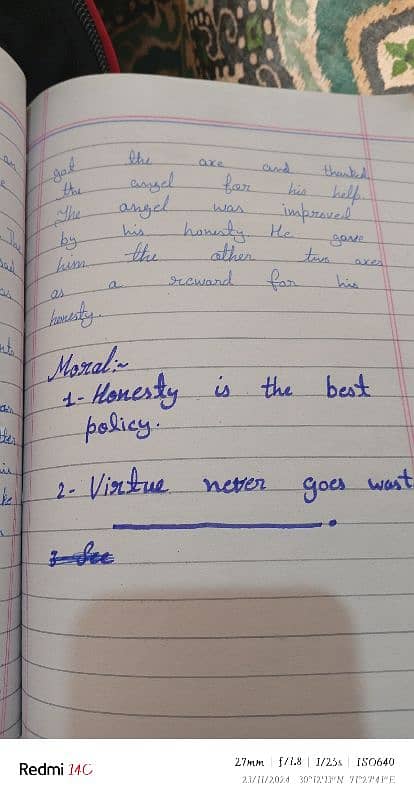 got the axe and thanked
the angel for his help.
The angel was improved
by his honesty He gave
him the other two axes
as a reward for his
honesty.
Moral:~
1- Honesty is the best
policy.
2- Virtue never goes wast
3- See
Redmi 14C
27mm | f/1.8 | 1/25s | ISO640
23/11/2024 30°12'13"N 71°27'41"E